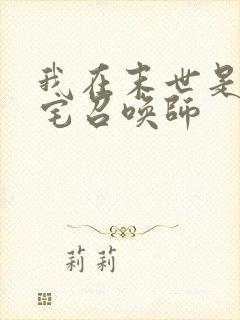 我在末世是
宅召唤师
莉莉